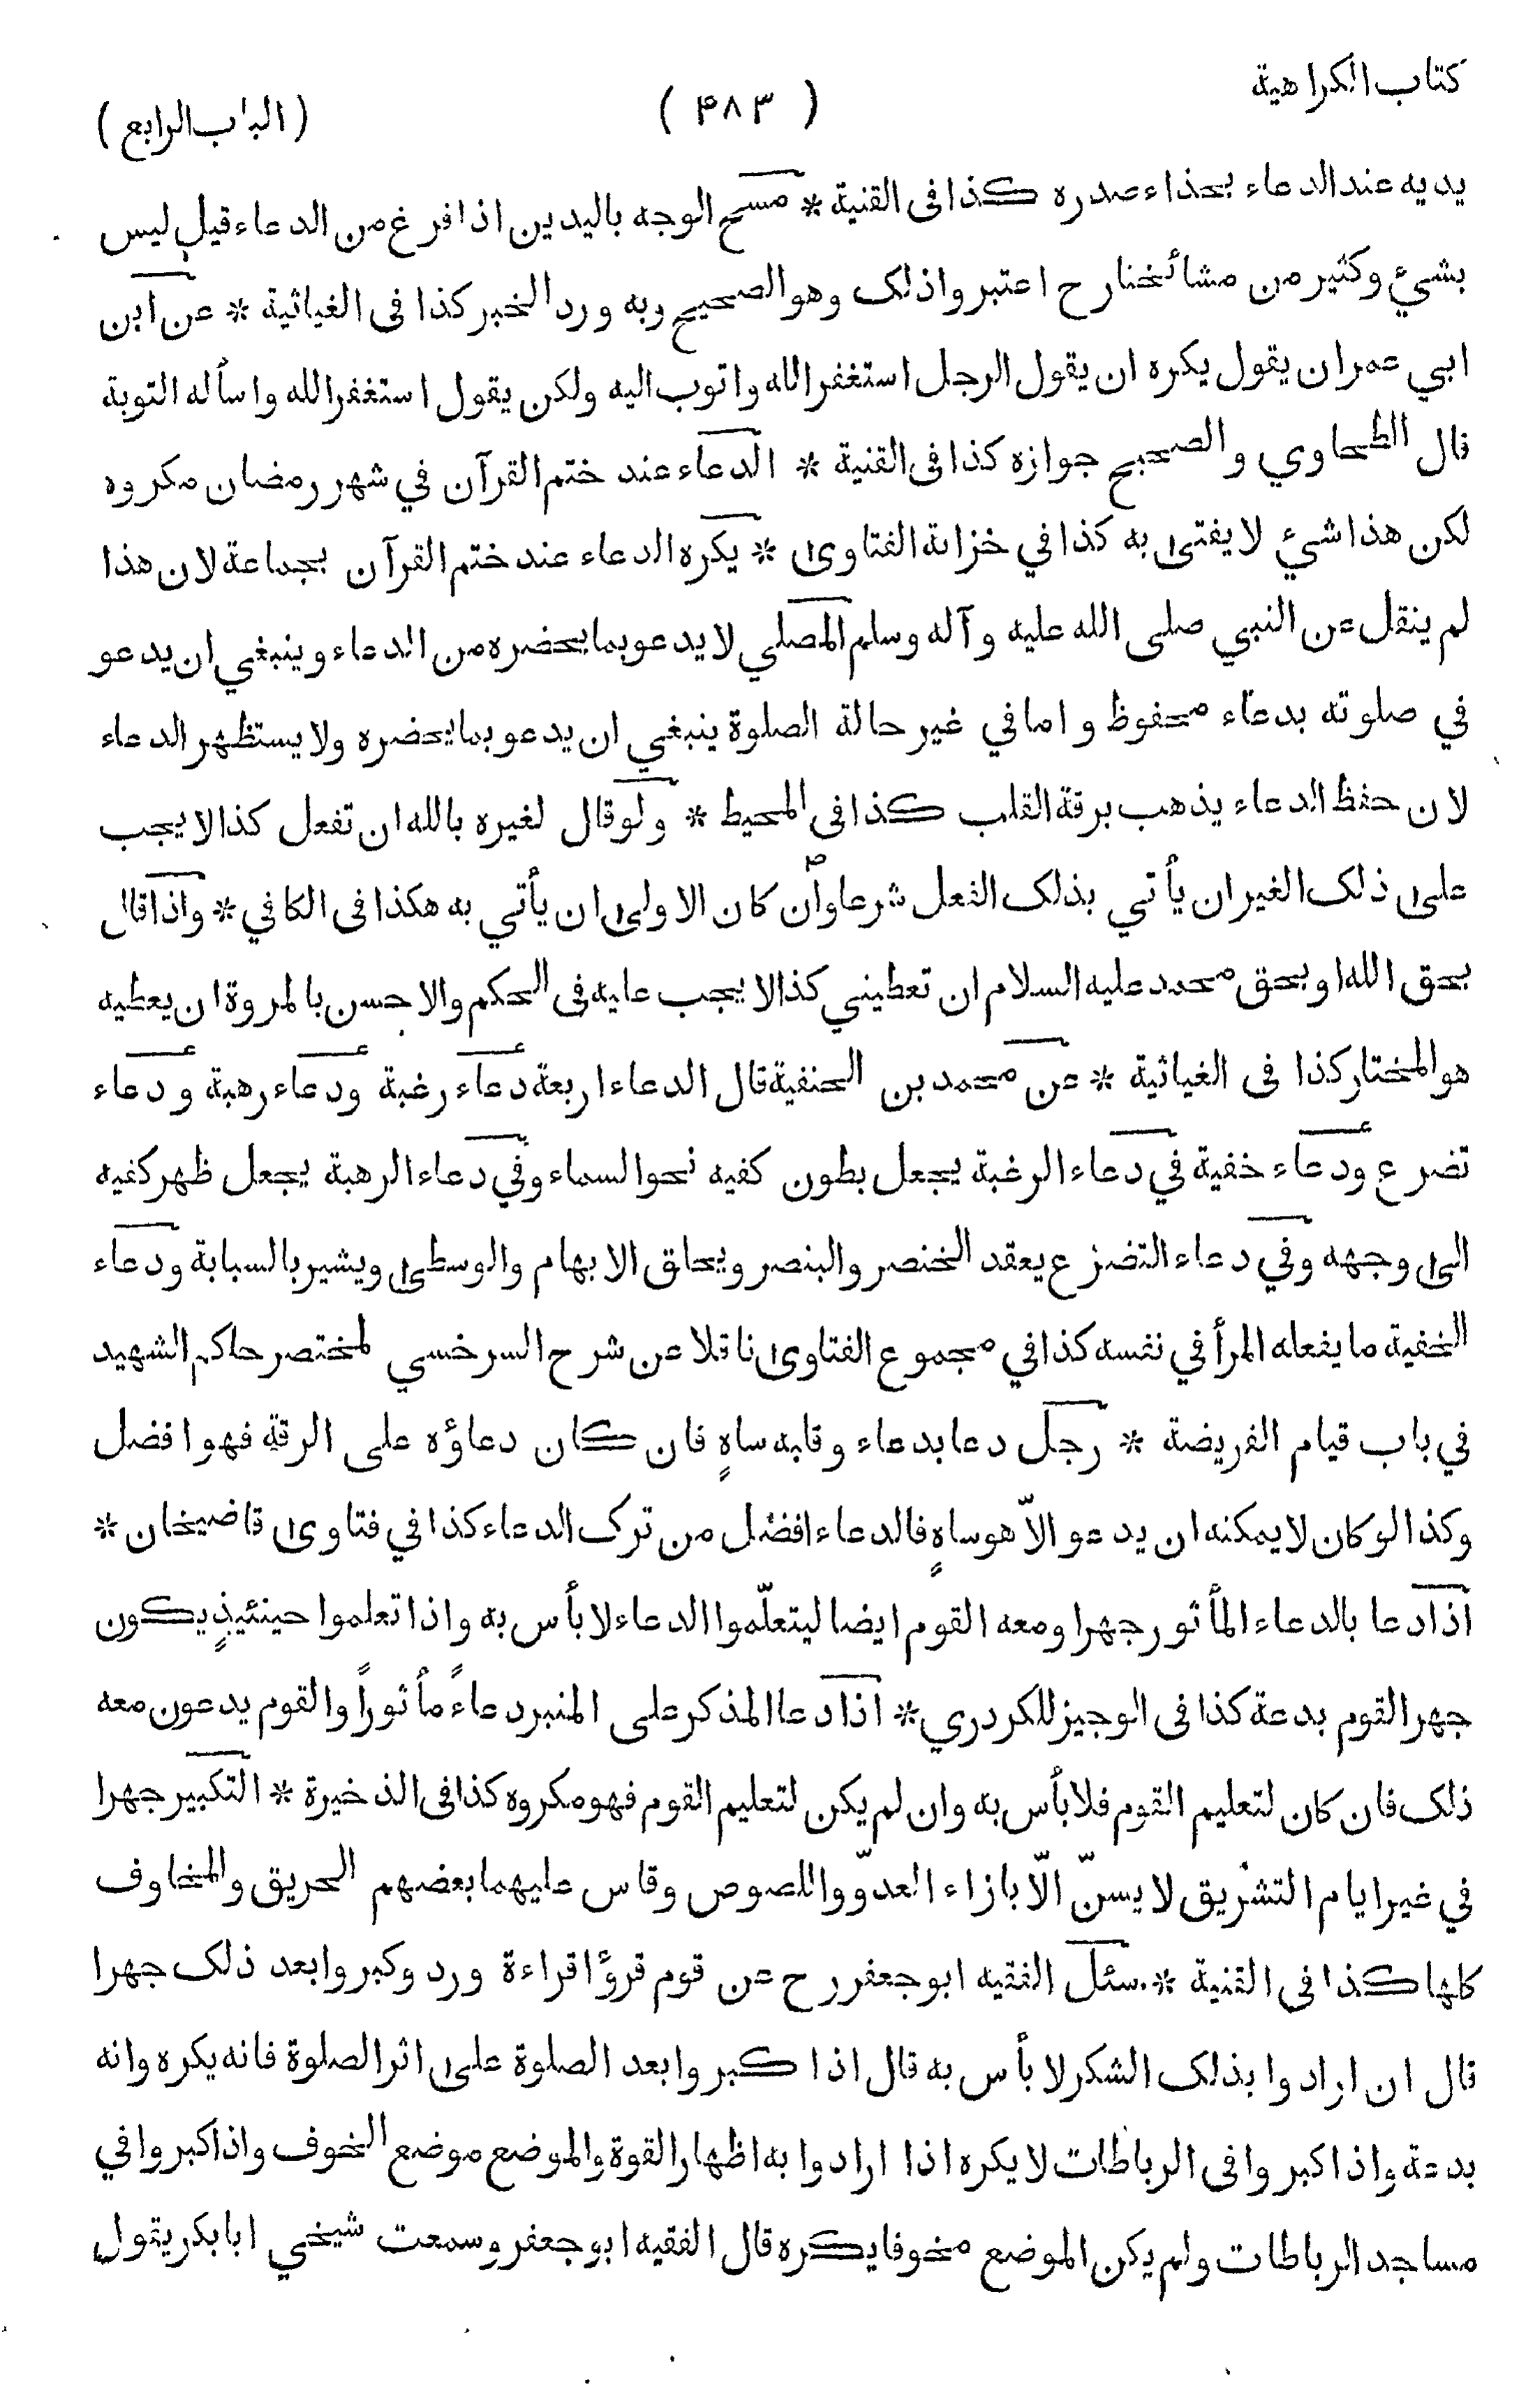 كتاب الكراهية
( ۴۸۳ )
( الباب الرابع )
يديه عند الدعاء بحذاء صدره كذا فى القنية * مسح الوجه باليدين اذا فرغ من الدعاء قيل ليس
بشيء وكثير من مشائخنا رح اعتبروا ذلك وهو الصحيح وبه ورد الخبر كذا فى الغياثية * عن ابن
ابي عمران يقول يكره ان يقول الرجل استغفر الله واتوب اليه ولكن يقول استغفر الله واسأله التوبة
قال الطحاوي والصحيح جوازه كذا فى القنية * الدعاء عند ختم القرآن في شهر رمضان مكروه
لكن هذا شيء لا يفتى به كذا في خزانة الفتاوى * يكره الدعاء عند ختم القرآن بجماعة لان هذا
لم ينقل عن النبي صلى الله عليه وآله وسلم المصلي لا يدعو بما يحضره من الدعاء وينبغي ان يدعو
في صلوته بدعاء محفوظ واما في غير حالة الصلوة ينبغي ان يدعو بما يحضره ولا يستظهر الدعاء
لان حفظ الدعاء يذهب برقة القلب كذا فى المحيط * ولو قال لغيره بالله ان تفعل كذا لا يجب
على ذلك الغير ان يأتي بذلك الفعل شرعا وان كان الاولى ان يأتي به هكذا فى الكافي * واذا قال
بحق الله او بحق محمد عليه السلام ان تعطيني كذا لا يجب عليه فى الحكم والاحسن بالمروة ان يعطيه
هو المختار كذا فى الغياثية * عن محمد بن الحنفية قال الدعاء اربعة دعاء رغبة ودعاء رهبة ودعاء
تضرع ودعاء خفية في دعاء الرغبة يجعل بطون كفيه نحو السماء وفي دعاء الرهبة يجعل ظهر كفيه
الى وجهه وفي دعاء التضرع يعقد الخنصر والبنصر ويحلق الابهام والوسطى ويشير بالسبابة ودعاء
الخفية ما يفعله المرأ في نفسه كذا في مجموع الفتاوى ناقلا عن شرح السرخسي لمختصر حاكم الشهيد
في باب قيام الفريضة * رجل دعا بدعاء وقلبه ساهٍ فان كان دعاؤه على الرقة فهو افضل
وكذا لو كان لا يمكنه ان يدعو الاّ هو ساهٍ فالدعاء افضل من ترك الدعاء كذا في فتاوى قاضيخان *
اذا دعا بالدعاء المأثور جهرا ومعه القوم ايضا ليتعلّموا الدعاء لا بأس به واذا تعلموا حينئيذٍ يكون
جهر القوم بدعة كذا فى الوجيز للكردري * اذا دعا المذكر على المنبر دعاءً مأثوراً والقوم يدعون معه
ذلك فان كان لتعليم القوم فلا بأس به وان لم يكن لتعليم القوم فهو مكروه كذا فى الذخيرة * التكبير جهرا
في غير ايام التشريق لا يسنّ الّا بازاء العدوّ واللصوص وقاس عليهما بعضهم الحريق والمخاوف
كلها كذا فى القنية * سئل الفقيه ابو جعفر رح عن قوم قرؤا قراءة ورد وكبروا بعد ذلك جهرا
قال ان ارادوا بذلك الشكر لا بأس به قال اذا كبروا بعد الصلوة على اثر الصلوة فانه يكره وانه
بدعة واذا كبروا فى الرباطات لا يكره اذا ارادوا به اظهار القوة والموضع موضع الخوف واذا كبروا في
مساجد الرباطات ولم يكن الموضع مخوفا يكره قال الفقيه ابو جعفر وسمعت شيخي ابا بكر يقول